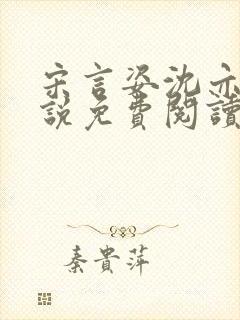 宋言姿沈亦
說免費閱讀
秦貴萍